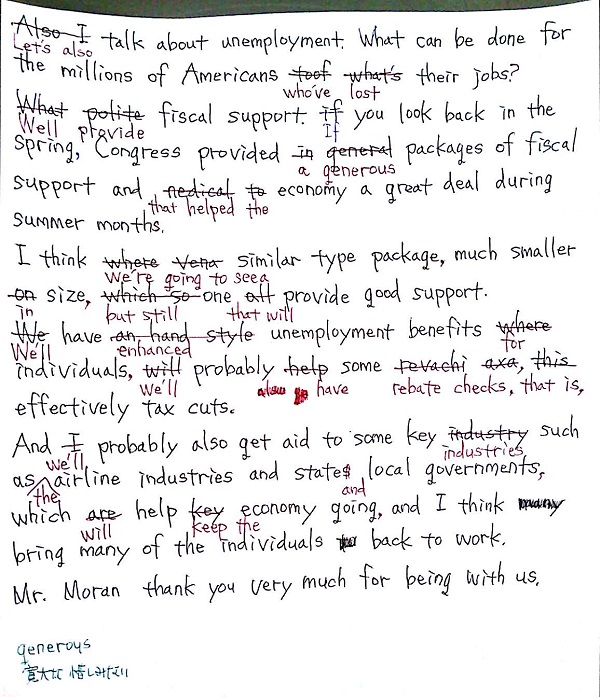 Also I talk about unemployment. What can be done for
Let's also
the millions of Americans toof what's their jobs?
who've lost
What polite fiscal support. if you look back in the
We'll provide If
Spring, Congress provided in general packages of fiscal
a generous
support and medical to economy a great deal during
that helped the
summer months.
I think where Vena similar type package, much smaller
We're going to see a
on size, which so one all provide good support.
in but still that will
We have an, hand style unemployment benefits where
We'll enhanced for
individuals, will probably help some revachi axa, this
We'll also have rebate checks, that is,
effectively tax cuts.
And I probably also get aid to some key industry such
we'll industries
as airline industries and states local governments,
the and
which are help key economy going, and I think
will keep the
bring many of the individuals back to work.
Mr. Moran thank you very much for being with us.
generous
寛大な 惜しみない